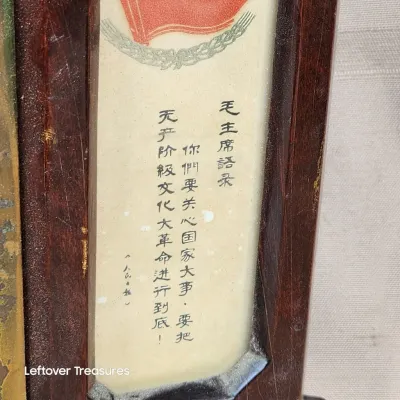 毛主席語录
你們要关心国家大事,要把
无产阶级文化大革命进行到底!
《人民日报》
Leftover Treasures